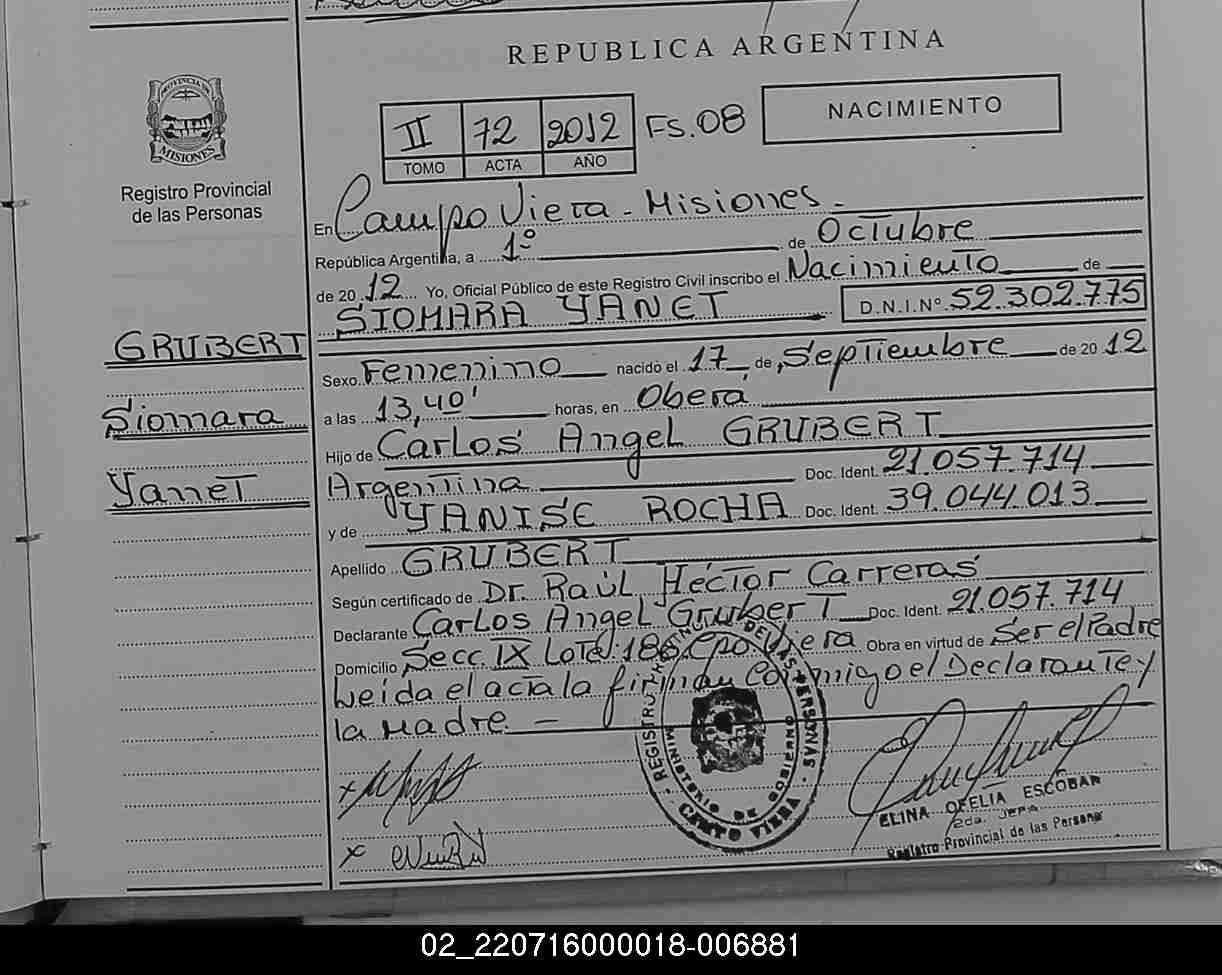 REPUBLICA ARGENTINA
PROVINCIA DE
MISIONES
Registro Provincial
de las Personas
II 72 2012 FS.08
TOMO ACTA AÑO
NACIMIENTO
En Campo Viera - Misiones -
República Argentina, a 1º de Octubre
de 2012 Yo, Oficial Público de este Registro Civil inscribo el Nacimiento de
SIOMARA YANET D.N.I.Nº 52.302.775
GRUBERT
Siomara
Yanet
Sexo Femenino nacido el 17 de Septiembre de 2012
a las 13,40' horas, en Oberá
Hijo de Carlos Angel GRUBERT
Argentina Doc. Ident. 21.057.714
y de YANISE ROCHA Doc. Ident. 39.044.013
Apellido GRUBERT
Según certificado de Dr. Raúl Héctor Carreras
Declarante Carlos Angel Grubert Doc. Ident. 21.057.714
Domicilio Secc. IX Lote: 186 Cpo. Viera Obra en virtud de Ser el Padre
Leída el acta la firman conmigo el Declarante y
la Madre. -
REGISTRO DE LAS PERSONAS
MINISTERIO DE GOBIERNO
CAMPO VIERA
x
x
ELINA OFELIA ESCOBAR
2da. JEFA
Registro Provincial de las Persona
02_220716000018-006881